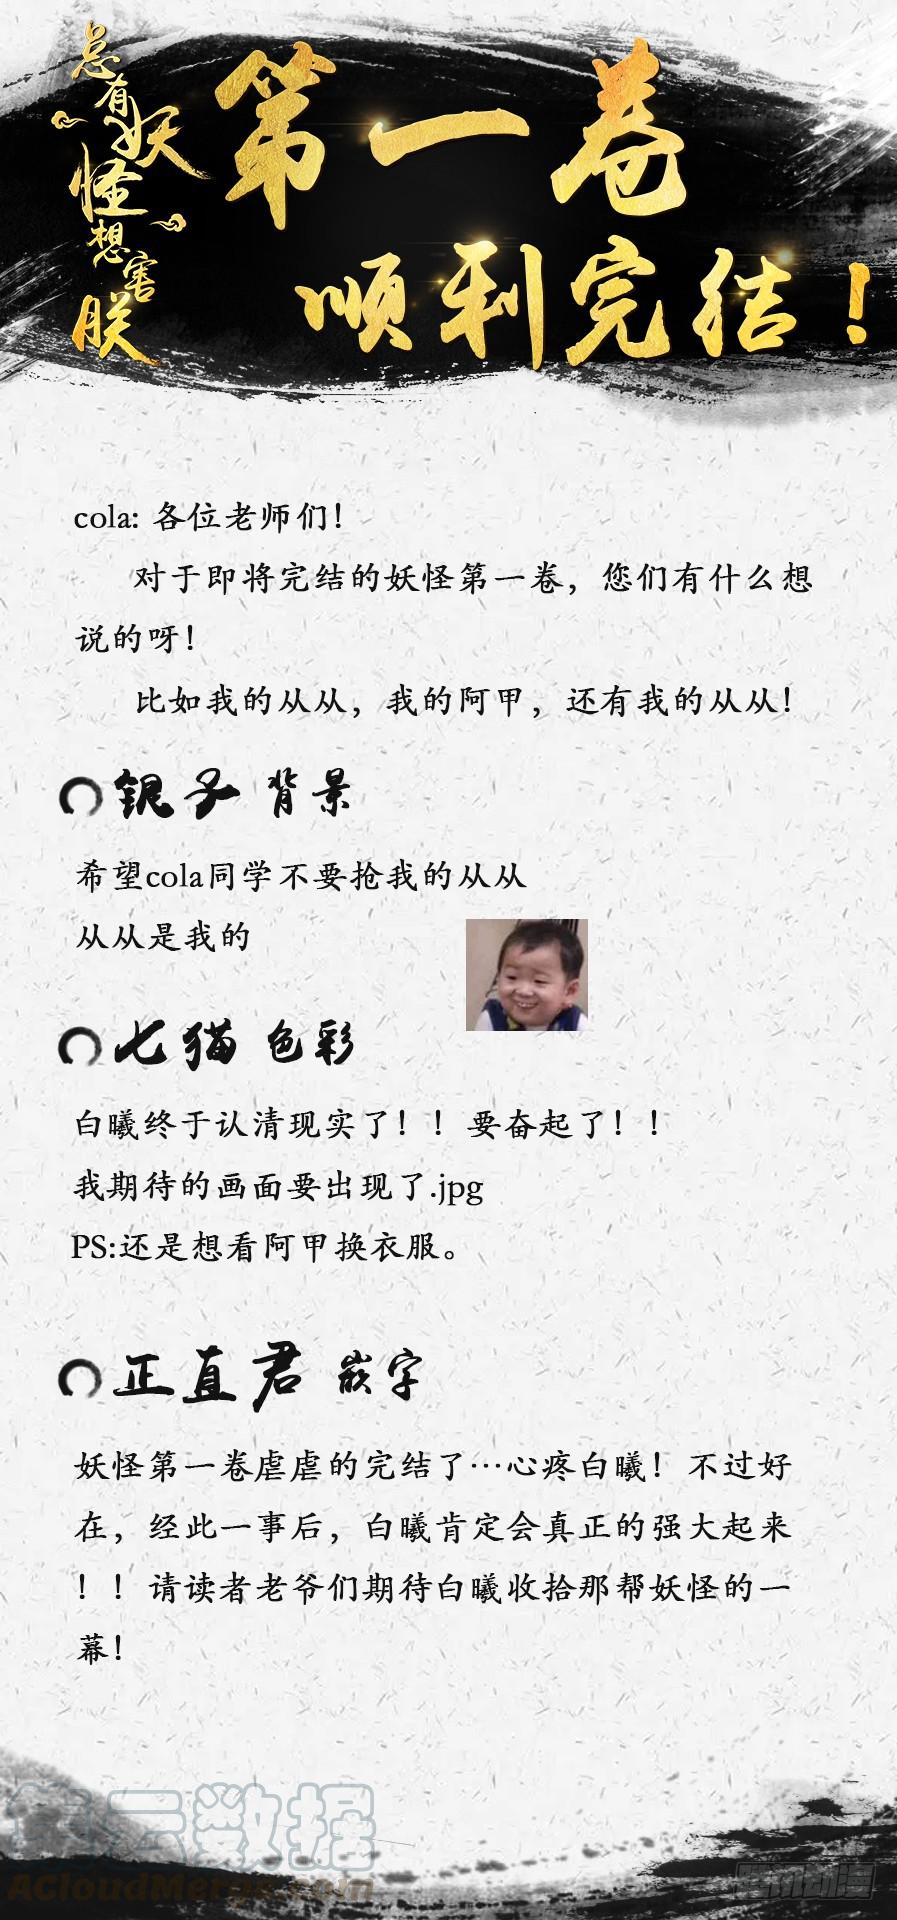 总有妖怪想害朕
第一卷
顺利完结！
cola: 各位老师们！
对于即将完结的妖怪第一卷，您们有什么想
说的呀！
比如我的从从，我的阿甲，还有我的从从！
银子 背景
希望cola同学不要抢我的从从
从从是我的
七猫 色彩
白曦终于认清现实了！！要奋起了！！
我期待的画面要出现了.jpg
PS:还是想看阿甲换衣服。
正直君 嵌字
妖怪第一卷虐虐的完结了…心疼白曦！不过好
在，经此一事后，白曦肯定会真正的强大起来
！！请读者老爷们期待白曦收拾那帮妖怪的一
幕！
集云数据
ACloudMerge.com
腾讯动漫